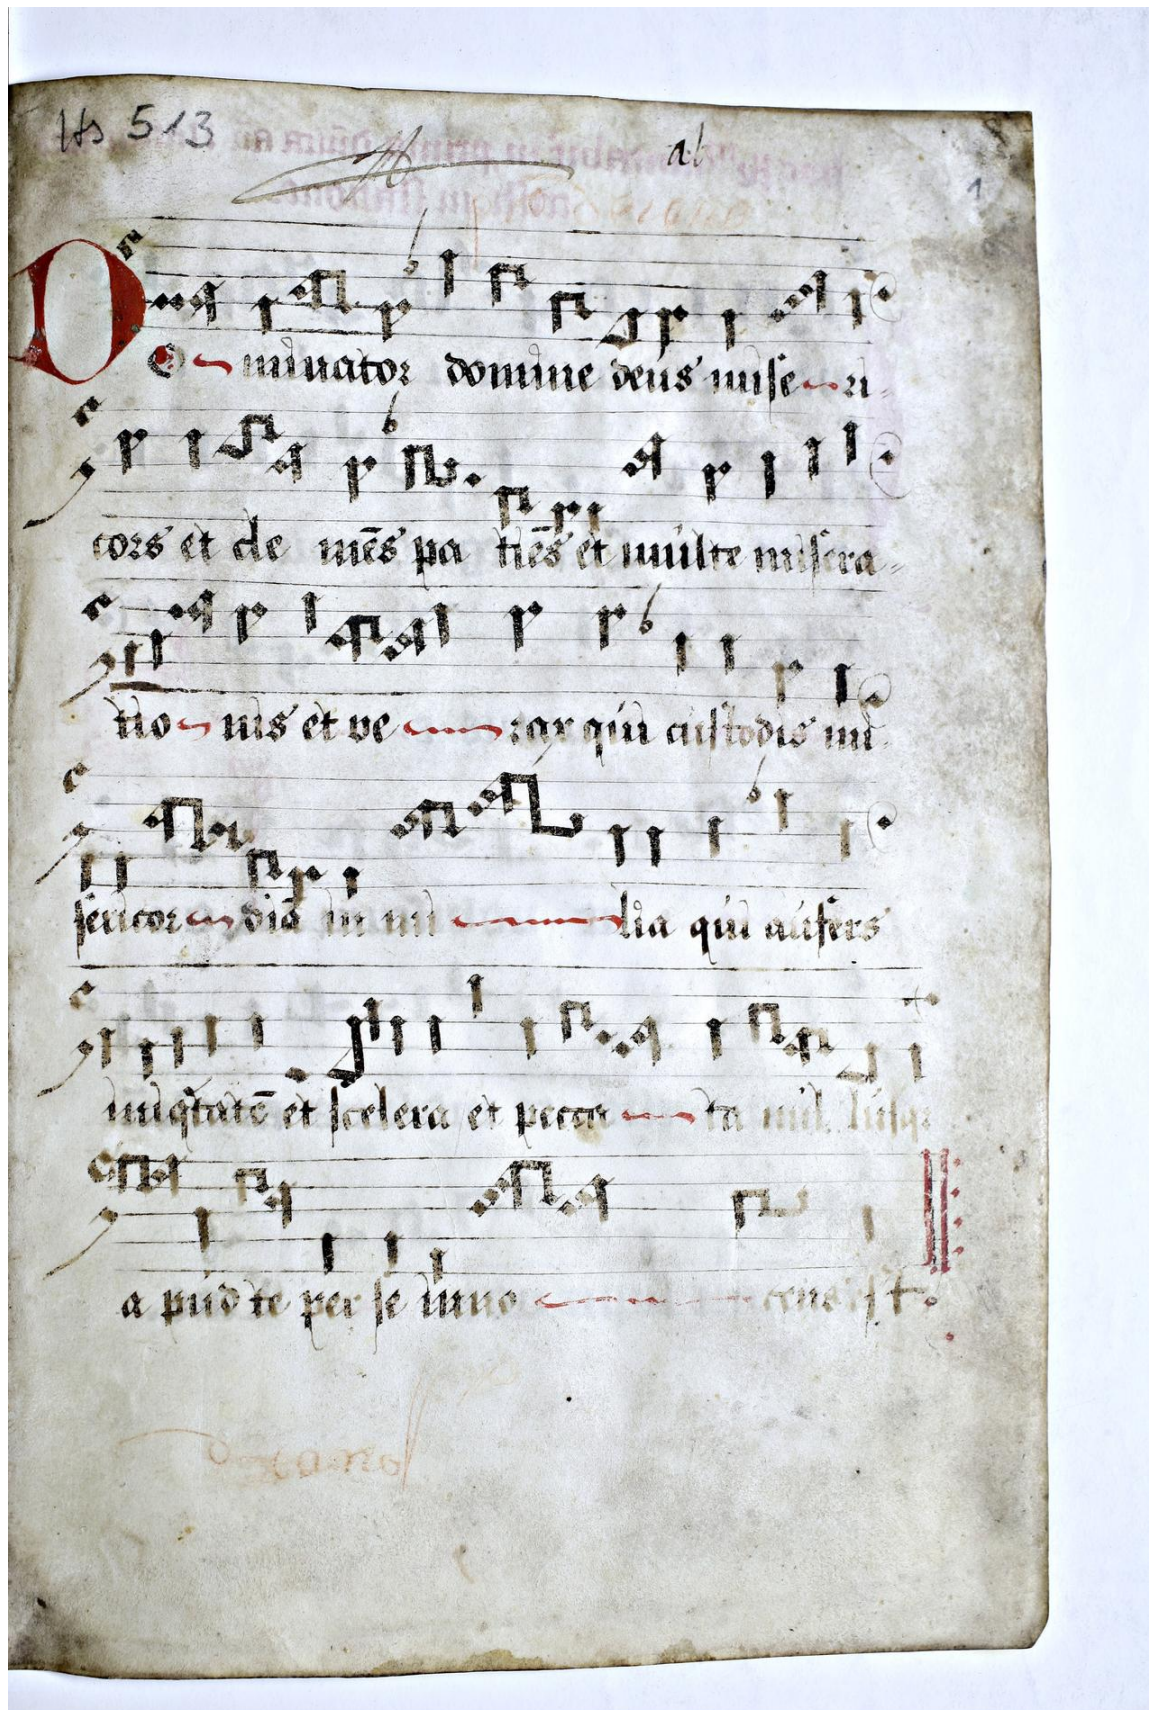 Hs 513
al
1
Dominator domine deus miseri-
cors et clemēs patiēs et multe misera-
tionis et verax qui custodis mi-
sericordiā in milia qui aufers
iniqͥtatē et scelera et peccata
apud te per se innocens est